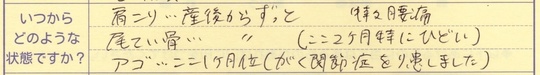 いつから
どのような
状態ですか?
肩こり…産後からずっと 特に腰痛
尾てい骨… 〃 (ここ2ケ月特にひどい)
アゴ…ここ1ケ月位(がく関節症を患しました)